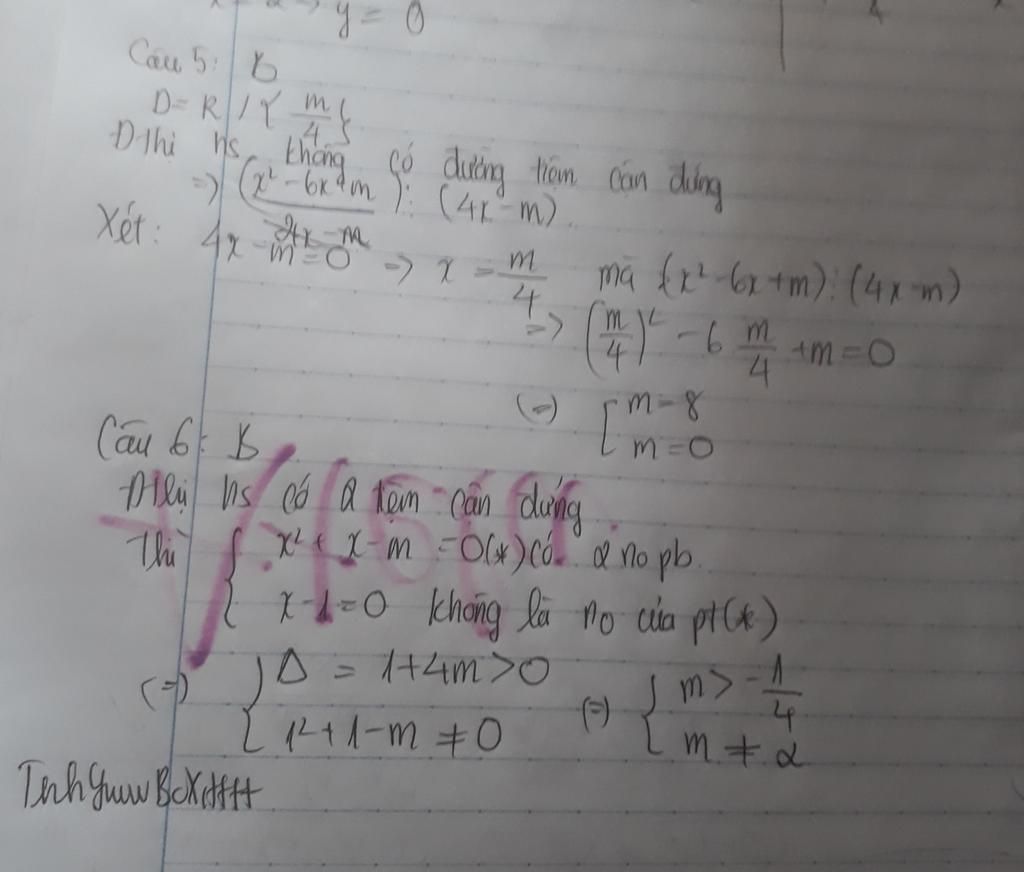 y = 0
Câu 5: B
D = R / { m/4 }
Đthị hs không có đường tiệm cận đứng
=> (x² - 6x + m) ⋮ (4x - m)
4x - m
Xét: 4x - m = 0 => x = m/4 mà (x² - 6x + m) ⋮ (4x - m)
=> (m/4)² - 6 m/4 + m = 0
(=) [ m = 8
m = 0
Câu 6: B
Đthị hs có 2 tiệm cận đứng
Thì { x² + x - m = 0 (*) có 2 no pb.
x - 1 = 0 không là no của pt (*)
(=) { Δ = 1 + 4m > 0 (=) { m > -1/4
1² + 1 - m ≠ 0 m ≠ 2